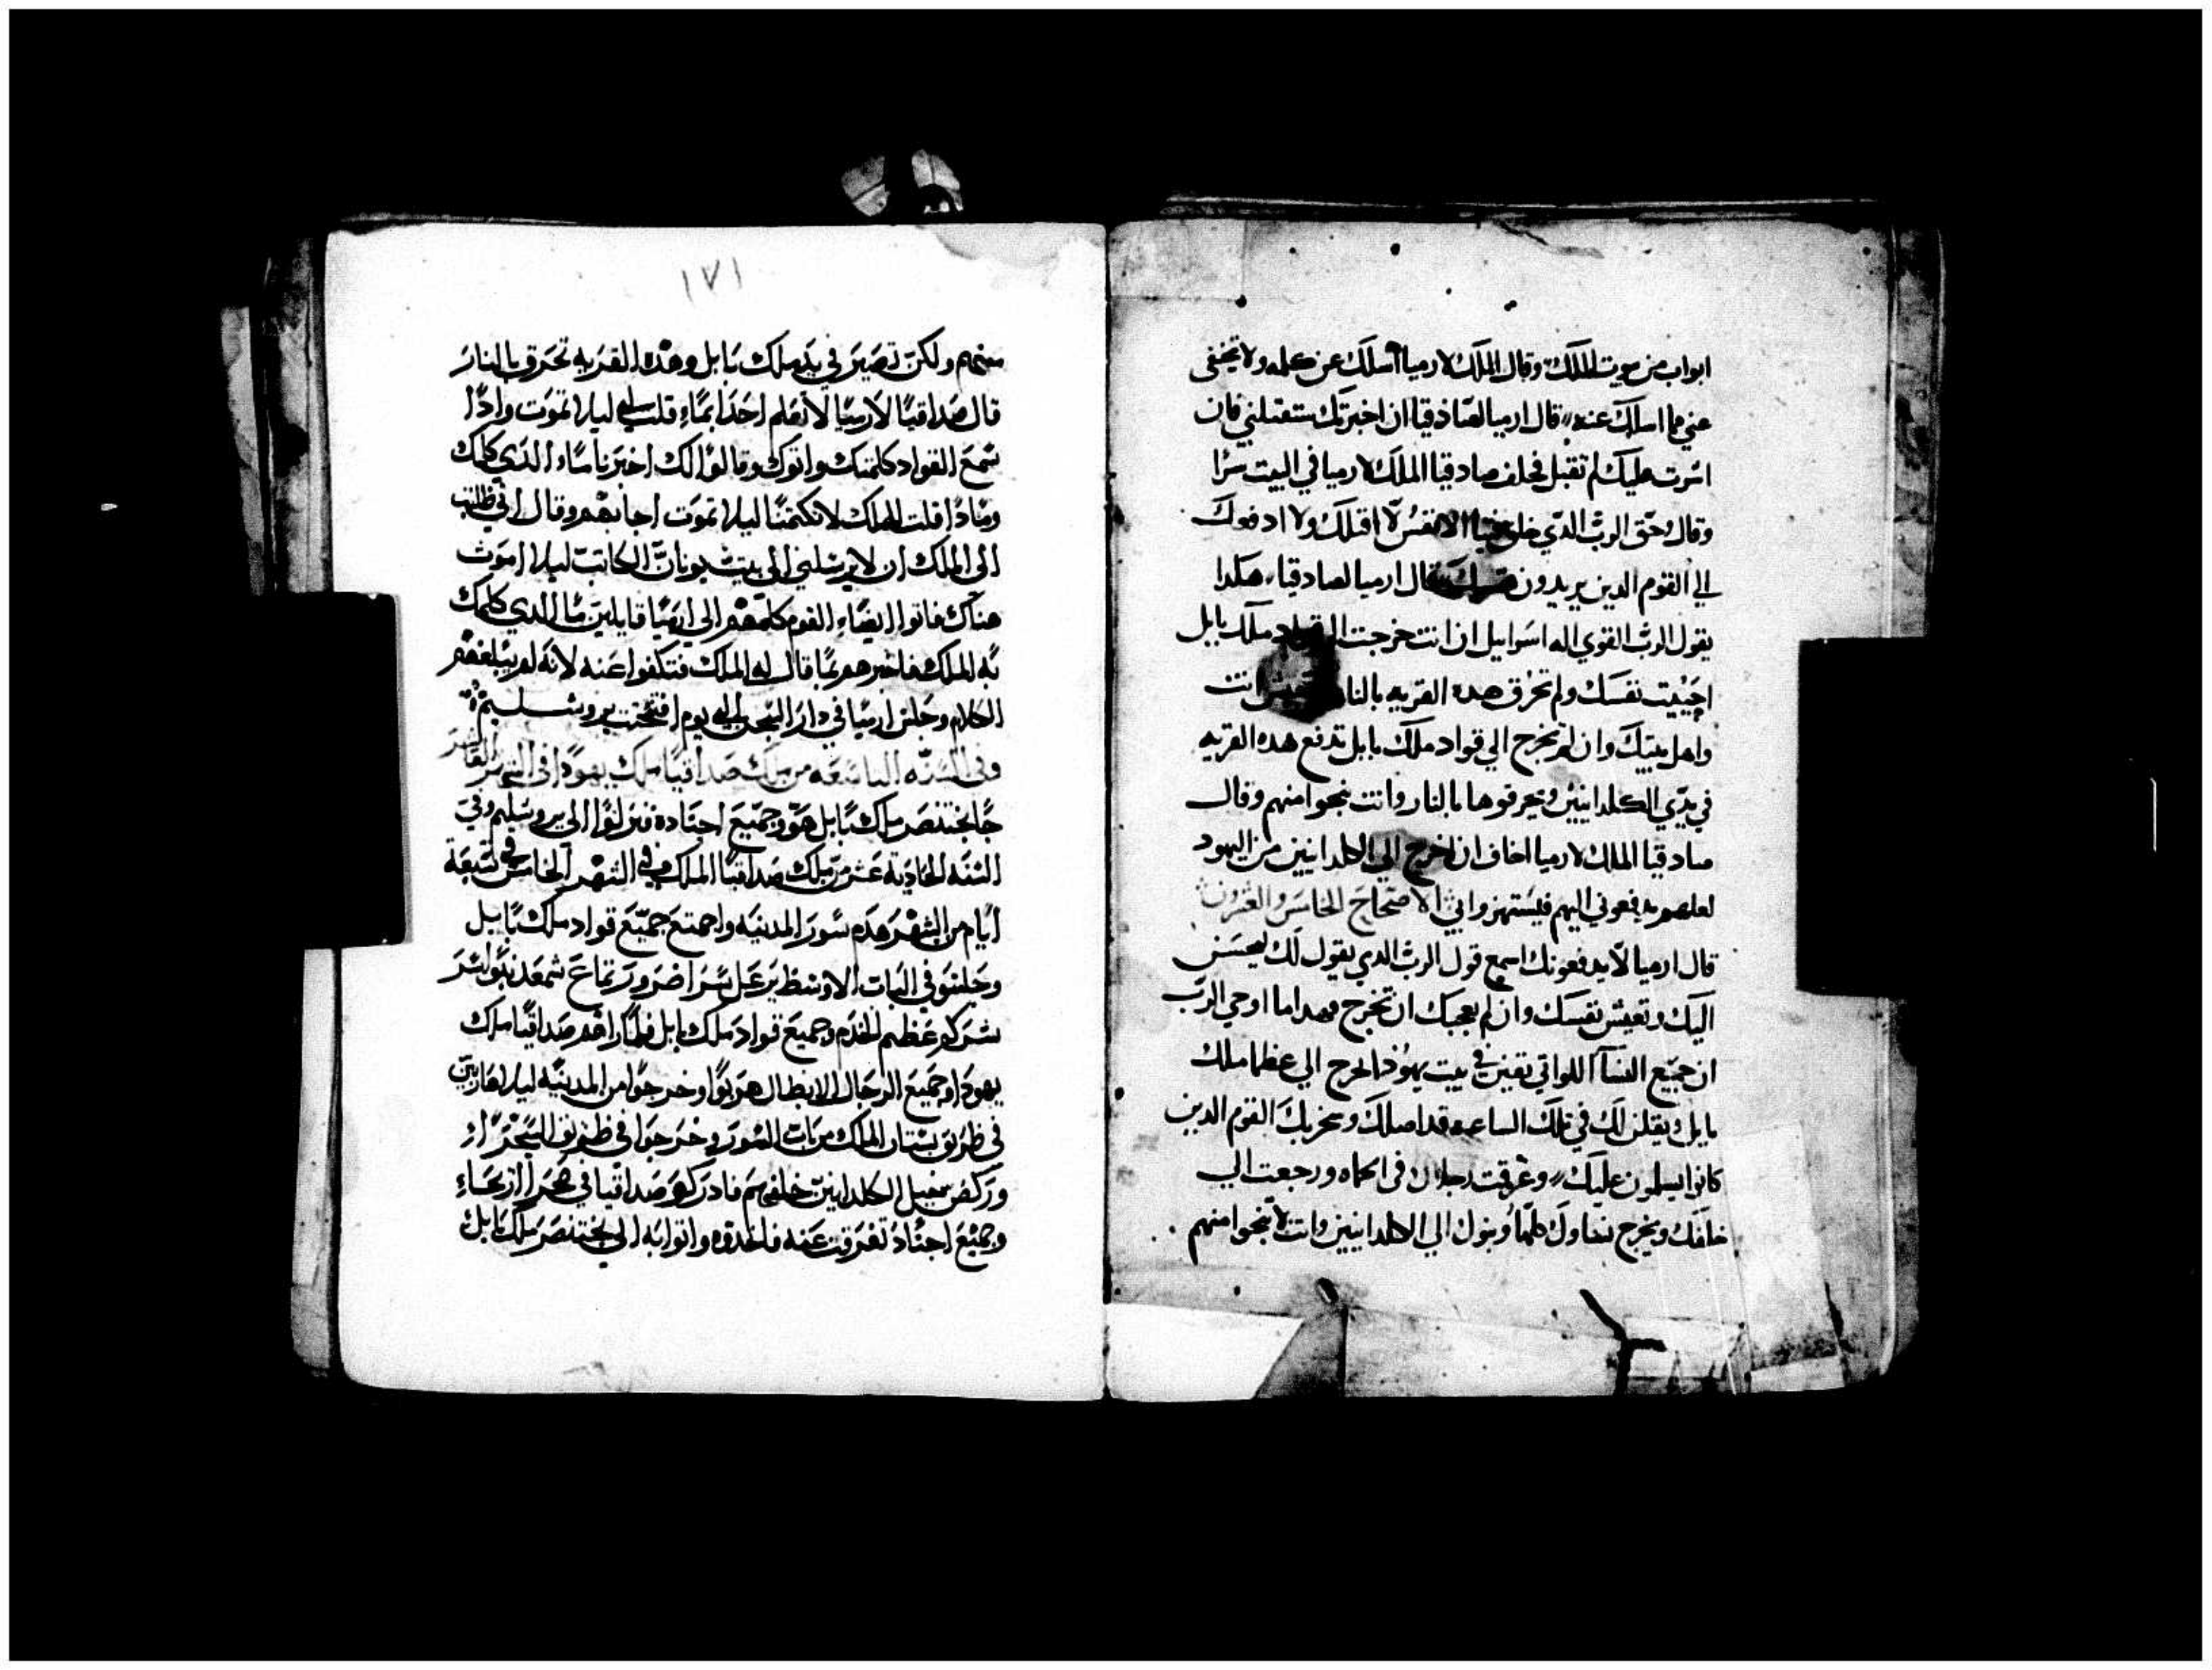 ابواب من بيت الملك وقال الملك لارميا اسلك عن كلمه ولا تخفى
عني ما اسلك عنه قال ارميا لصادقيا ان اخبرتك ستقتلني فان
اشرت عليك لم تقبل فحلف صادقيا الملك لارميا في البيت سرا
وقال حق الرب الدي خلق الانفس لا اقتلك ولا ادفعك
الي القوم الدين يريدون قال ارميا لصادقيا هكدا
يقول الرب القوي اله اسرايل ان انت خرجت الي ملك بابل
احييت نفسك ولم تحرق هده القريه بالنار انت
واهل بيتك وان لم تخرج الي قواد ملك بابل تدفع هده القريه
في يدي الكلدانيين ويحرقوها بالنار وانت تنجوا منهم وقال
صادقيا الملك لارميا اخاف ان اخرج الي الكلدانيين من اليهود
لعلهم يدفعوني اليهم فيستهزوا بي الاصحاح الخامس والعشرون
قال ارميا لا يدفعونك اسمع قول الرب الدي يقول لك ليحسن
اليك وتعيش نفسك وان لم يعجبك ان تخرج فهدا ما اوحي الرب
ان جميع النسآ اللواتي بقين في بيت يهودا تخرج الي عظما ملك
بابل ويقلن لك في تلك الساعه قد اضلك القوم الدين
كانوا يسلمون عليك وغرقت رجلاك في الحماه ورجعت الي
خلفك ويخرج نساوك كلها وبنوك الي الكلدانيين وانت لا تنجوا منهم
١٧١
منهم ولكن تصير في يد ملك بابل وهده القريه تحرق بالنار
قال صداقيا لارميا لا تعلم احدا بما قلت لي ليلا تموت وادا
سمع القواد كلمتك واتوك وقالوا لك اخبرنا ما الدي كلمك
ومادا قلت للملك لا تكتمنا ليلا تموت اجابهم وقال اني طلبت
الى الملك ان لا يرسلني الى بيت يونان الكاتب ليلا اموت
هناك فاتوا ايضا القوم كلهم الى ارميا قايلين ما الدي كلمك
به الملك فاخبرهم بما قال له الملك فتكفوا عنه لانه لم يبلغهم
الكلام وجلس ارميا في دار السجن الى يوم افتتحت يروشليم
وفي السنه التاسعه من ملك صداقيا ملك يهودا في الشهر العاشر
جا بختنصر ملك بابل هو وجميع اجناده فنزلوا الى يروشليم وفي
السنه الحاديه عشر من ملك صداقيا الملك في الشهر الخامس في تسعة
ايام من الشهر هدم سور المدينه واجتمع جميع قواد ملك بابل
وجلسوا في الباب الاوسط
عظيم الخدم وجميع قواد ملك بابل فلما راهم صداقيا ملك
يهودا وجميع الرجال الابطال هربوا وخرجوا من المدينه ليلا هاربين
في طريق بستان الملك من باب السور وخرجوا في طريق
وركض خيل الكلدانيين خلفهم فادركوا صداقيا في صحرا ازيحاء
وجميع اجناد تفرقت عنه فاخدوه واتوا به الي بختنصر ملك بابل